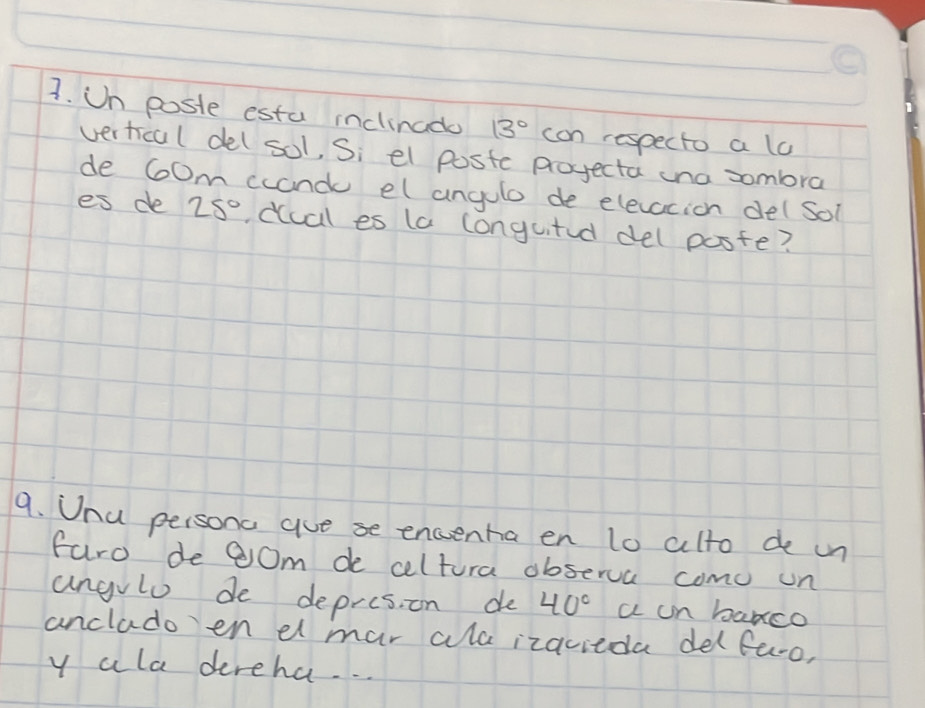 7. Un poste esta inclinado 13° con respecto a la
vertical del sol. Si el poste proyecta una sombra
de 60m cuando el angulo de elevacion del sol
es de 25°. cual es la longuitud del poste?
9. Una persona que se encuentra en lo alto de un
faro de 80m de altura observa como un
angulo de depresion de 40° a un barco
anclado en el mar ala izquieda del faro,
y a la dereha...